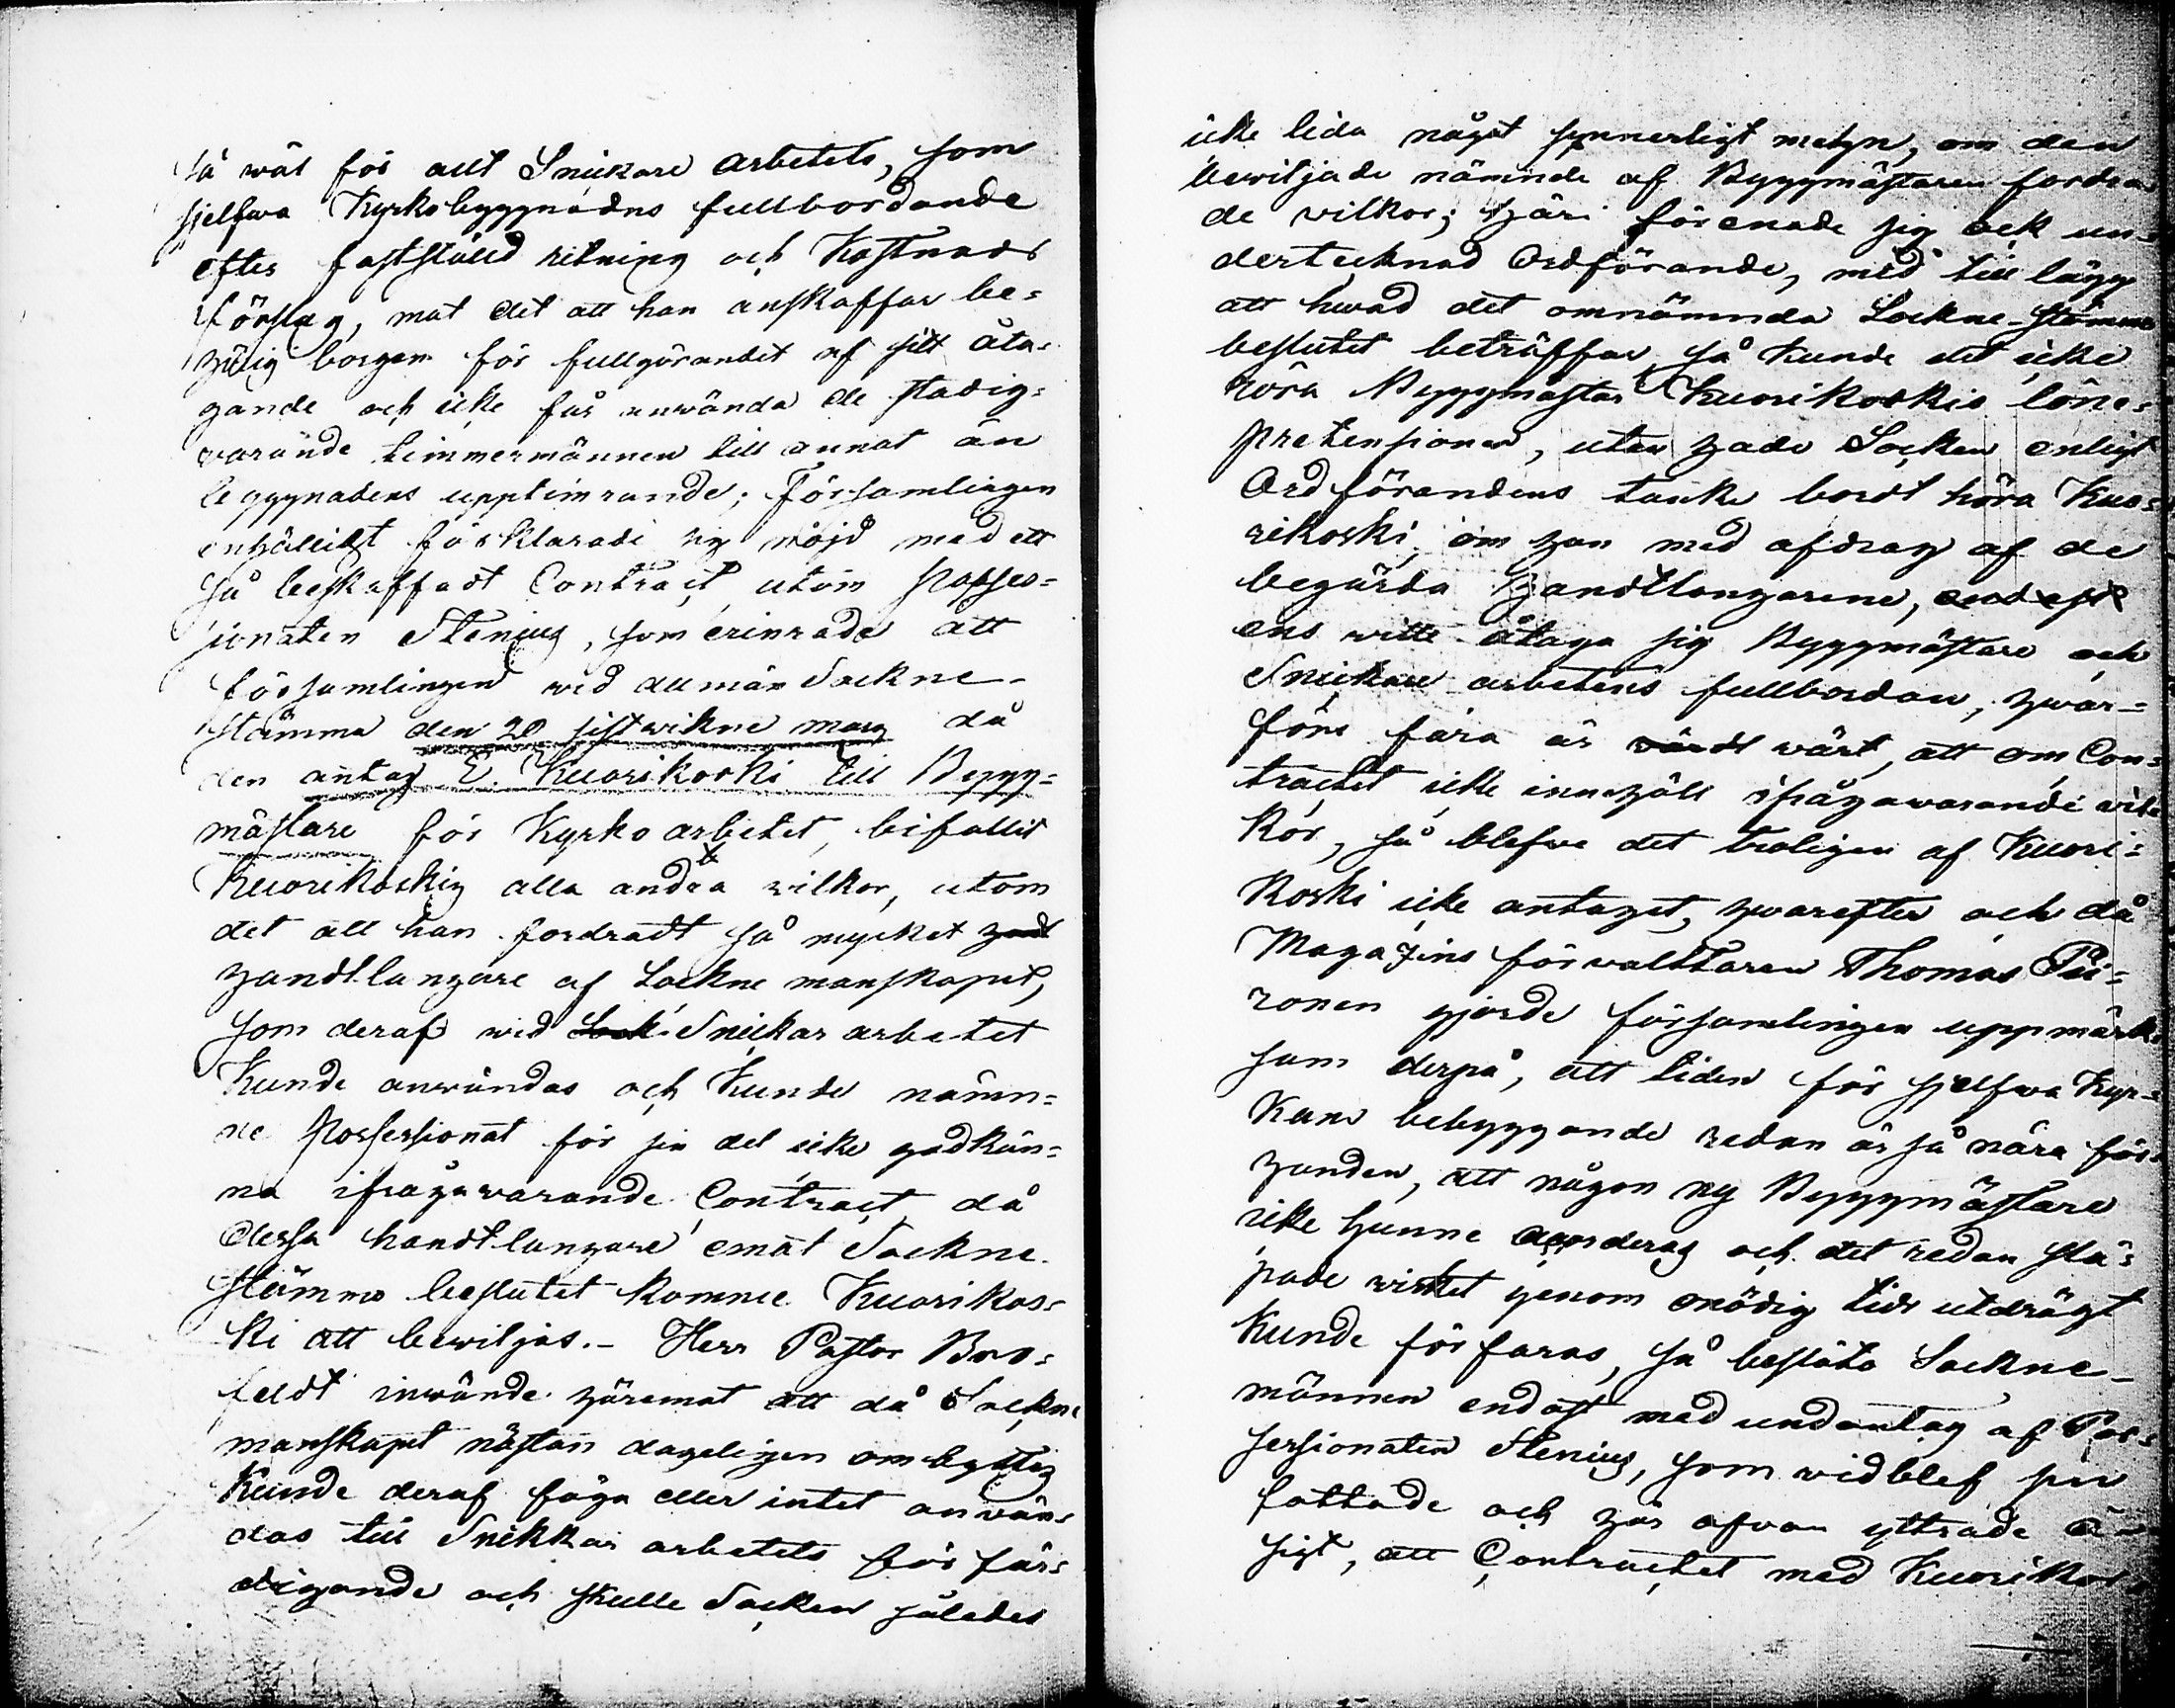 så wäl för allt Snickare arbetets, som
sjelfwa Kyrkobyggnadns fullbordande
efter fastställd ritning och Kostnads
förslag, mot det att han anskaffar be=
hörig borgen för fullgörandet af sitt åta=
gande och icke får anwända de stadig=
warande timmermännen till annat än
byggnadens upptimrande; församlingen
enhälligt förklarade sig nöjd med ett
så beskaffadt Contract, utom posses=
sionaten Stenius, som erinrade att
församlingen wid allmän Sockne-
stämma den 20 sistwikne mars då
den antog E. Kuorikoski till Bygg=
mästare för Kyrko arbetet, bifallit
Kuorikoskis alla andra wilkor, utom
det att han fordradt så mycket
handtlangare af Sockne manskapet,
som deraf wid Snickar arbetet
Kunde anwändas och Kunde näm=
ne Possessionat för sin del icke godkän=
na ifrågawarande Contract, då
dessa handtlangare emot Sockne
stämmo beslutet komme Kuorikos=
ki att bewiljas.- Herr Pastor Bro=
feldt inwände häremot att då Sockne
manskapet nästan dageligen ombyttes
Kunde deraf föga eller intet anwän=
das till Snikkar arbetets förfär=
digande och skulle Socken således
icke lida något synnerligt men, om den
bewiljade nämnde af Byggmästaren fordra
de wilkor; häri förenade sig ock un=
dertecknad Ordförande, med tillägg
att hwad det omnämnda Sockne-stämmo
beslutet beträffar, så kunde det icke
röra Byggmästar Kuorikoskis löne=
pretensioner, utan hade Socken enligt
Ordförandens tanke bordt höra Kuo=
rikoski, om han med afdrag af de
begärda Handtlangarene,
ens wille åtaga sig Byggmästare och
Snickare arbetens fullbordan, hwar=
före fara är wärt, att om Con=
tractet icke innehöll ifrågawarande wil
kor, så blefwe det troligen af Kuori=
koski icke antaget, hwarefter och då
Magazins förwalttaren Thomas Pii=
ronen gjorde församlingen uppmärk=
sam derpå, att tiden för sjelfwa Kyr=
kans bebyggande redan är så nära för
handen, att någon ny Byggmästare
icke hunne och det redan släpade wirket genom onödig tids utdrägt
Kunde förfaras, så beslöto Sockne-
männen endast med undantag af Pos=
sessionaten Stenius, som widblef sin
fattade och här ofwan yttrade å=
sigt, att Contractet med Kuorikos=